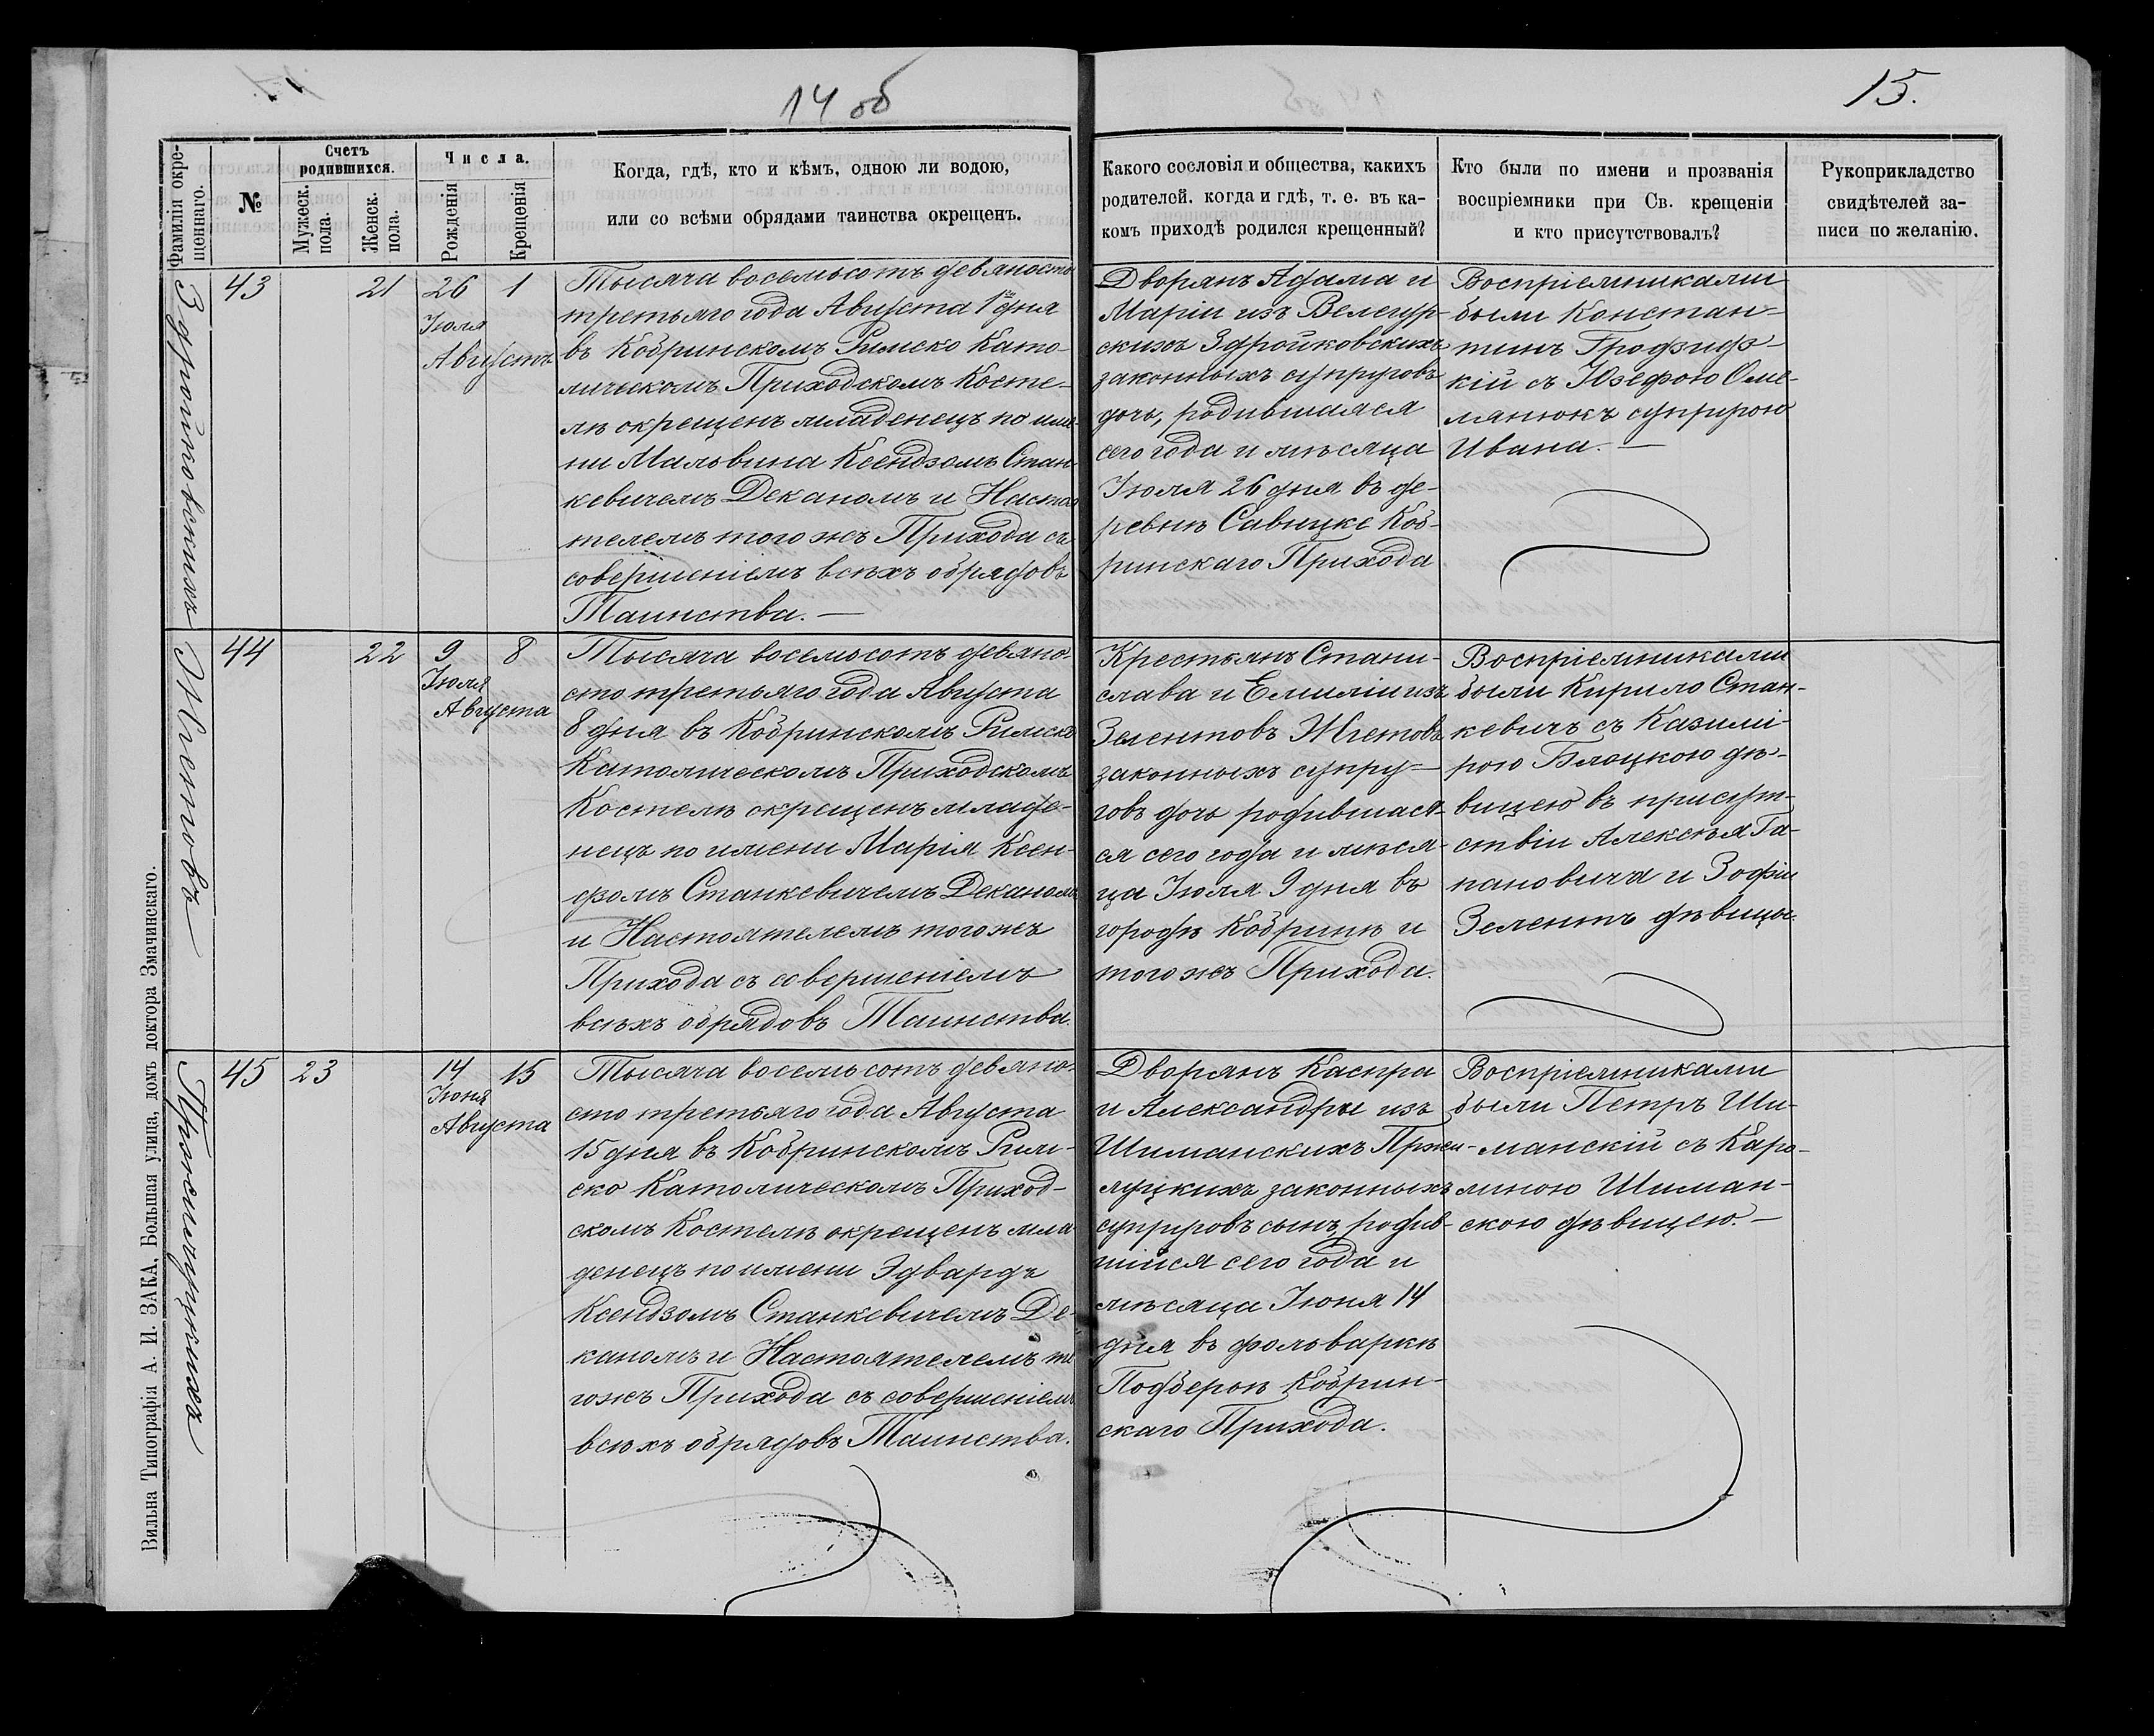 14 об
15.
Фамилія окрещеннаго.
№
Счетъ родившихся.
Мужеск. пола.
Женск. пола.
Числа.
Рожденія
Крещенія
Когда, гдѣ, кто и кѣмъ, одною ли водою,
или со всѣми обрядами таинства окрещенъ.
Какого сословія и общества, какихъ
родителей. когда и гдѣ, т. е. въ ка-
комъ приходѣ родился крещенный?
Кто были по имени и прозванія
воспріемники при Св. крещеніи
и кто присутствовалъ?
Рукоприкладство
свидѣтелей за-
писи по желанію.
Здройковскихъ
43
21
26 1
Іюля
Августъ
Тысяча восемьсотъ девяносто
третьяго года Августа 1го дня
въ Кобринскомъ Римско Като-
лическомъ Приходскомъ Косте-
лѣ окрещенъ младенецъ по име-
ни Мальвина Ксендзомъ Стан-
кевичемъ Деканомъ и Настоя
телемъ того жъ Прихода съ
совершеніемъ всѣхъ обрядовъ
Таинства. —
Дворянъ Адама и
Маріи изъ
скихъ Здройковскихъ
законныхъ супруговъ
дочь, родившаяся
сего года и мѣсяца
Іюля 26 дня въ де-
ревнѣ Савицке Коб-
ринскаго Прихода
Воспріемниками
были Констан-
тинъ
кій съ Юзефою Оме-
лянюкъ супругою
Ивана. —
Жметовъ
44
22
9 8
Іюля
Августа
Тысяча восемьсотъ девяно-
сто третьяго года Августа
8 дня въ Кобринскомъ Римско
Католическомъ Приходскомъ
Костелѣ окрещенъ младе-
нецъ по имени Марія Ксен-
дзомъ Станкевичемъ Деканомъ
и Настоятелемъ того жъ
Прихода съ совершеніемъ
всѣхъ обрядовъ Таинства.
Крестьянъ Стани-
слава и Емиліи изъ
Зелентовъ Жметовъ
законныхъ супру-
говъ дочь родившася-
ся сего года и мѣся-
ца Іюля 9 дня въ
городѣ Кобринѣ и
того жъ Прихода.
Воспріемниками
были Кирило Стан-
кевичъ съ Казимі-
рою Блоцкою дѣ-
вицею въ присут-
ствіи Алексѣя Га-
пановича и Зофіи
Зелентъ дѣвицы.
Пржилуцкихъ
45
23
14 15
Іюня
Августа
Тысяча восемьсотъ девяно-
сто третьяго года Августа
15 дня въ Кобринскомъ Рим-
ско Католическомъ Приход-
скомъ Костелѣ окрещенъ мла
денецъ по имени Эдвардъ
Ксендзомъ Станкевичемъ Де-
каномъ и Настоятелемъ то
гожъ Прихода съ совершеніемъ
всѣхъ обрядовъ Таинства.
Дворянъ Каспра
и Александры изъ
Шиманскихъ Пржи-
луцкихъ законныхъ
супруговъ сынъ родив-
шійся сего года и
мѣсяца Іюня 14
дня въ фольваркѣ
Кобрин-
скаго Прихода.
Воспріемниками
были Петръ Ши-
манскій съ Каро-
линою Шиман-
скою дѣвицею. —
Вильна Типографія А. И. ЗАКА, Большая улица, домъ доктора Змачинскаго.